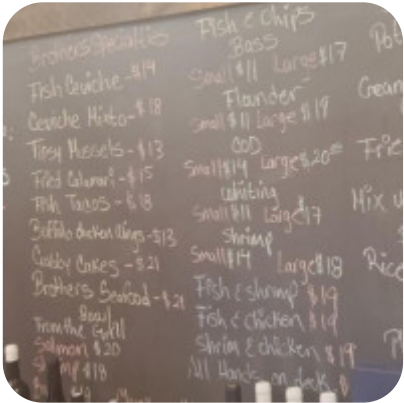 Brothers Specialties
Fish Ceviche - $14
Ceviche Mixto - $18
Tipsy Mussels - $13
Fried Calamari - $15
Fish Tacos - $18
Buffalo chicken Wings - $13
Crabby Cakes - $21
Brothers Seafood - $21
Bowl
From the Grill
Salmon $20
$18
Fish & Chips
Bass
Small $11 Large $17
Flander
Small $11 Large $19
COD
Small $14 Large $20
Whiting
Small $11 Large $17
Shrimp
Small $14 Large $18
Fish & shrimp $19
Fish & chicken $19
Shrim & chicken $19
All Hands on deck $
Mix